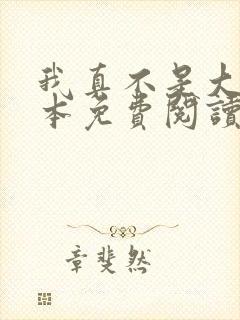 我真不是大
本免費閱讀
章斐然